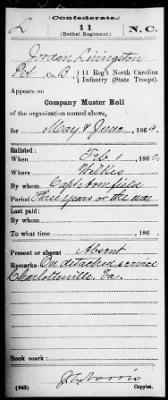 (Confederate.)
L 11 N.C.
(Bethel Regiment.)
Jordan Livingston
Pvt, Co. B, 11 Reg't North Carolina
Infantry (State Troops).
Appears on
Company Muster Roll
of the organization named above,
for May & June, 1864.
Enlisted:
When Feb 1, 186
Where Wilkes
By whom Capt
Period Three years or the war
Last paid:
By whom
To what time , 186 .
Present or absent Absent
Remarks: On detached service
Charlottesville, Va.
Book mark:
(642) Copyist.